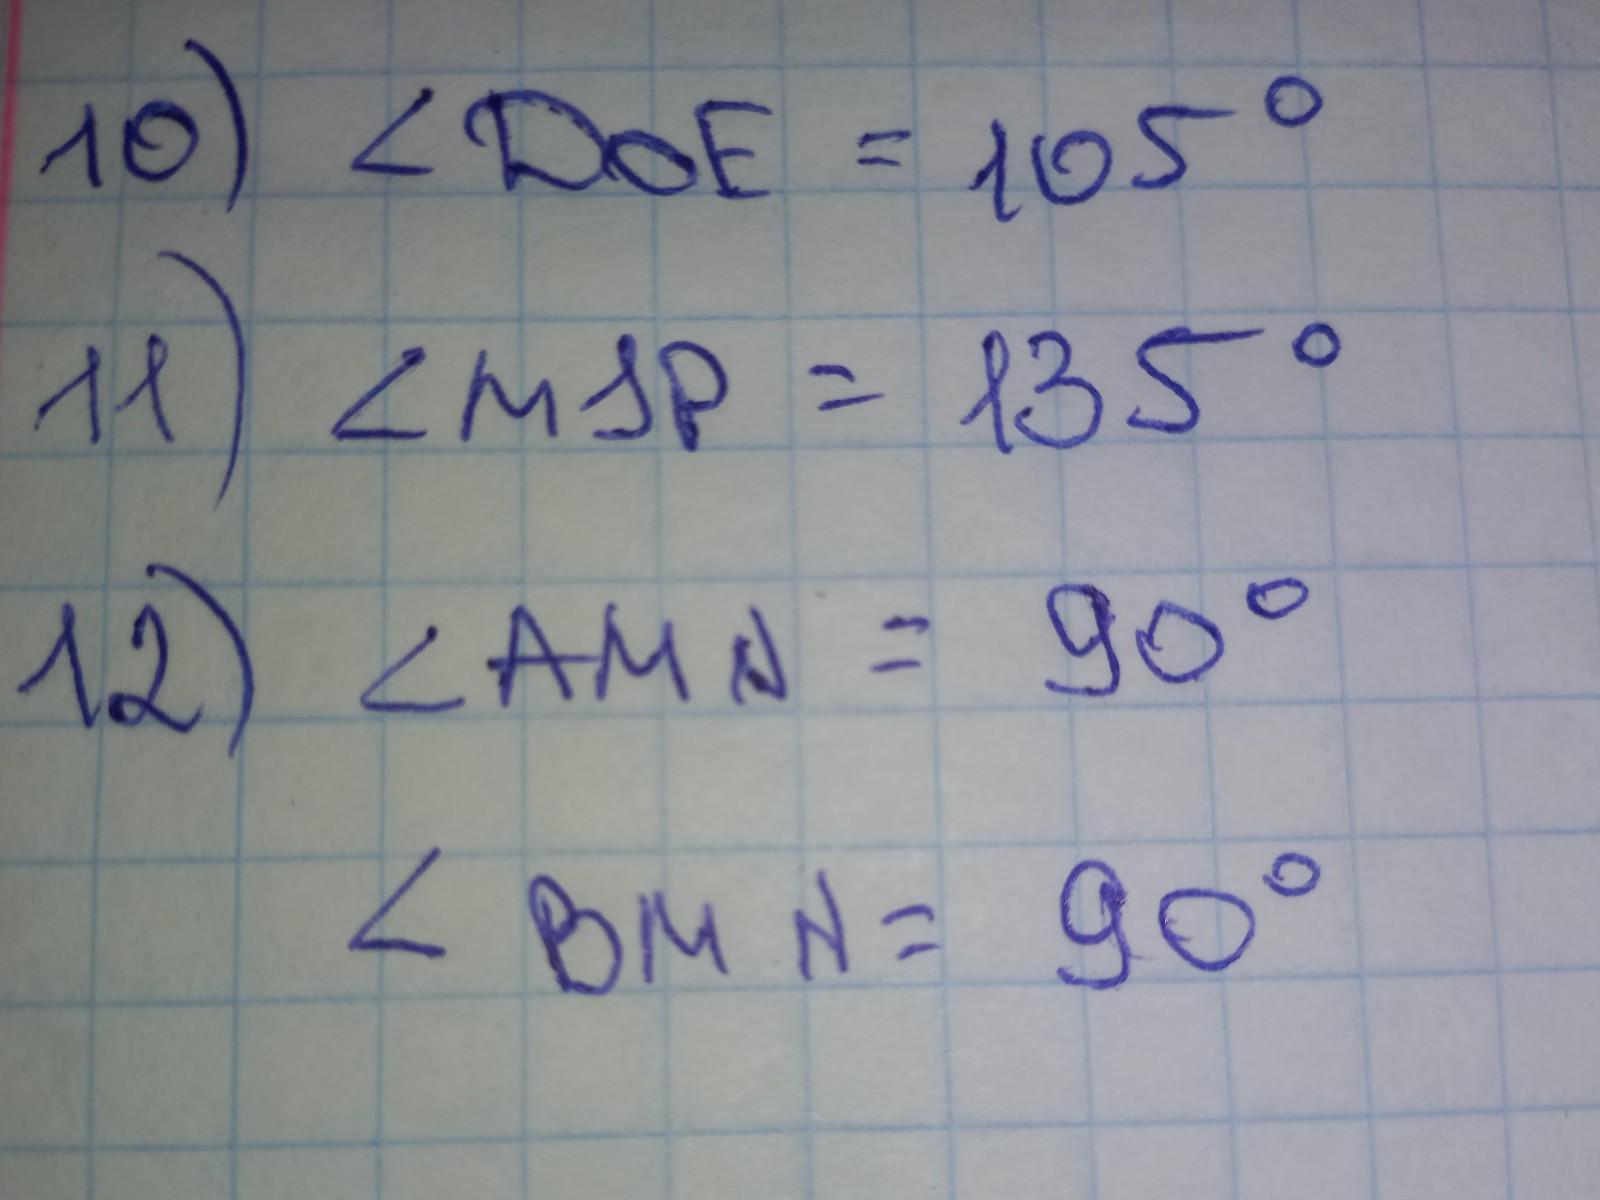 10) ∠DOE = 105°
11) ∠MSP = 135°
12) ∠AMN = 90°
∠BMN = 90°